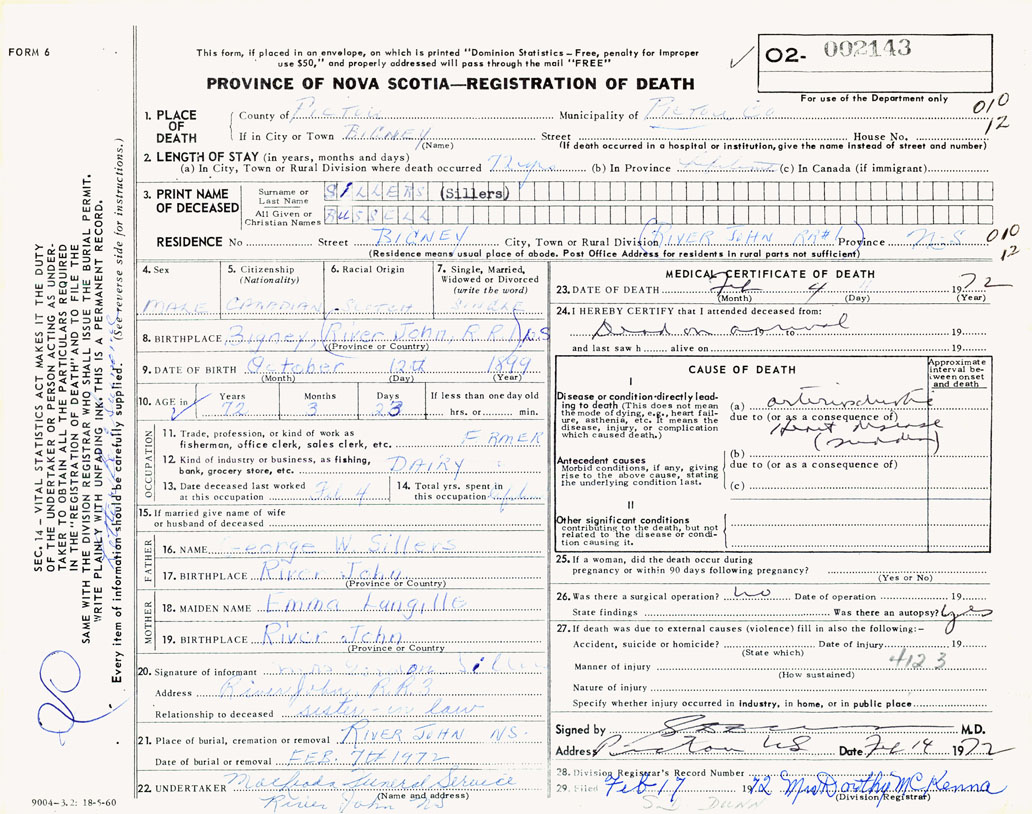 FORM 6
This form, if placed in an envelope, on which is printed "Dominion Statistics – Free, penalty for improper
use $50," and properly addressed will pass through the mail "FREE"
PROVINCE OF NOVA SCOTIA—REGISTRATION OF DEATH
O2- 002143
For use of the Department only
010
12
1. PLACE OF DEATH
County of Pictou Municipality of Pictou Co
If in City or Town BIGNEY Street House No.
(Name) (If death occurred in a hospital or institution, give the name instead of street and number)
2. LENGTH OF STAY (in years, months and days)
(a) In City, Town or Rural Division where death occurred 72 yrs (b) In Province (c) In Canada (if immigrant)
3. PRINT NAME OF DECEASED
Surname or Last Name SILLERS (Sillers)
All Given or Christian Names RUSSELL
RESIDENCE No Street BIGNEY City, Town or Rural Division (RIVER JOHN RR#1) Province N.S 010
12
(Residence means usual place of abode. Post Office Address for residents in rural parts not sufficient)
4. Sex 5. Citizenship (Nationality) 6. Racial Origin 7. Single, Married, Widowed or Divorced (write the word)
MALE CANADIAN SCOTCH SINGLE
8. BIRTHPLACE Bigney, (River John, R.R.1) N.S
(Province or Country)
9. DATE OF BIRTH October 12th 1899
(Month) (Day) (Year)
10. AGE in Years Months Days If less than one day old
72 3 23 hrs. or min.
OCCUPATION
11. Trade, profession, or kind of work as fisherman, office clerk, sales clerk, etc. FRMER
12. Kind of industry or business, as fishing, bank, grocery store, etc. DAIRY
13. Date deceased last worked at this occupation Feb 4 14. Total yrs. spent in this occupation
15. If married give name of wife or husband of deceased
FATHER
16. NAME George W. Sillers
17. BIRTHPLACE River John
(Province or Country)
MOTHER
18. MAIDEN NAME Emma Langille
19. BIRTHPLACE River John
(Province or Country
20. Signature of informant Mrs Sillers
Address River John R.R.3
Relationship to deceased sister-in law
21. Place of burial, cremation or removal RIVER JOHN NS.
Date of burial or removal FEB. 7TH 1972
22. UNDERTAKER Funeral Service
(Name and address)
River John NS
9004–3.2: 18-5-60
MEDICAL CERTIFICATE OF DEATH
23. DATE OF DEATH Feb 4 1972
(Month) (Day) (Year)
24. I HEREBY CERTIFY that I attended deceased from:
Dead on arrival 19
and last saw h alive on 19
CAUSE OF DEATH
Approximate interval between onset and death
I
Disease or condition directly leading to death (This does not mean the mode of dying, e.g., heart failure, asthenia, etc. It means the disease, injury, or complication which caused death.)
(a)
due to (or as a consequence of)
heart disease
(sudden)
Antecedent causes
Morbid conditions, if any, giving rise to the above cause, stating the underlying condition last.
(b)
due to (or as a consequence of)
(c)
II
Other significant conditions
contributing to the death, but not related to the disease or condition causing it.
25. If a woman, did the death occur during pregnancy or within 90 days following pregnancy?
(Yes or No)
26. Was there a surgical operation? No Date of operation 19
State findings Was there an autopsy? yes
27. If death was due to external causes (violence) fill in also the following:–
Accident, suicide or homicide? Date of injury 19
(State which) 412 3
Manner of injury
(How sustained)
Nature of injury
Specify whether injury occurred in industry, in home, or in public place
Signed by M.D.
Address Pictou NS Date Feb 14 1972
28. Division Registrar's Record Number
29. Filed Feb 17 1972 Mrs Dorothy McKenna
(Division Registrar)
DUNN
SEC. 14 – VITAL STATISTICS ACT MAKES IT THE DUTY
OF THE UNDERTAKER OR PERSON ACTING AS UNDER-
TAKER TO OBTAIN ALL THE PARTICULARS REQUIRED
IN THE "REGISTRATION OF DEATH" AND TO FILE THE
SAME WITH THE DIVISION REGISTRAR WHO SHALL ISSUE THE BURIAL PERMIT.
WRITE PLAINLY WITH UNFADING INK. THIS IS A PERMANENT RECORD.
Every item of information should be carefully supplied. (See reverse side for instructions.)